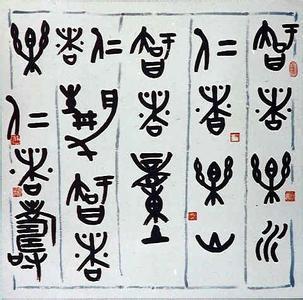 智者樂水
仁者樂山
智者動
仁者靜智者
樂仁者壽